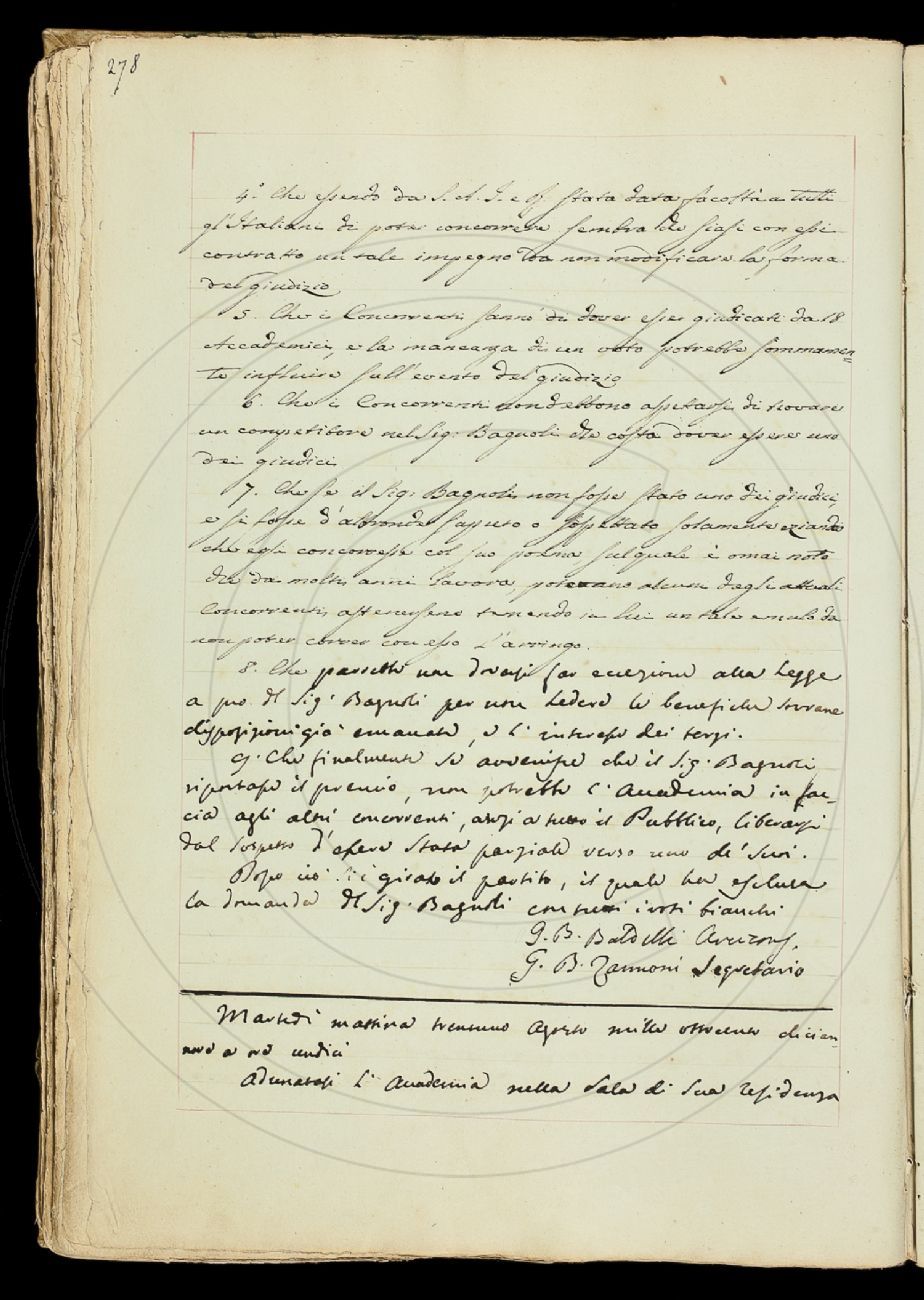 278
4.° Che essendo da S. A. I. e R. stata data facoltà a tutti
gl'Italiani di poter concorrere sembra che siasi con essi
contratto un tale impegno da non modificare la forma
del giudizio
5. Che i Concorrenti sanno di dover esser giudicati da 18
Accademici, e la mancanza di un voto potrebbe sommamen=
te influire sull'evento del giudizio
6. Che i Concorrenti non debbono aspettarsi di trovare
un competitore nel Sig: Bagnoli che costà dover essere uno
dei giudici
7. Che se il Sig: Bagnoli non fosse stato uno dei giudici,
e si fosse d'altronde saputo o sospettato solamente eziandio
che egli concorresse col suo poema sul quale è omai noto
che da molti anni lavora, potevano alcuni degli attuali
Concorrenti astenersene temendo in lui un tale emulo da
non poter correr con esso l'arringo.
8. Che parrebbe non doversi far eccezione alla Legge
a pro. del Sig.r Bagnoli per non ledere le benefiche sovrane
disposizioni già emanate, e l'interesse dei terzi.
9. Che finalmente se avvenisse che il Sig. Bagnoli
riportasse il premio, non potrebbe l'Accademia in fac-
cia agli altri concorrenti, anzi a tutto il Pubblico, liberarsi
dal sospetto d'essere stata parziale verso uno de' suoi.
Dopo ciò si è girato il partito, il quale ha esclusa
la domanda del Sig. Bagnoli con tutti i voti bianchi
G. B. Baldelli Arcicons.
G. B. Zannoni Segretario
Martedì mattina trentuno Agosto mille ottocento dician-
nove a ore undici
Adunatasi l'Accademia nella Sala di sua residenza